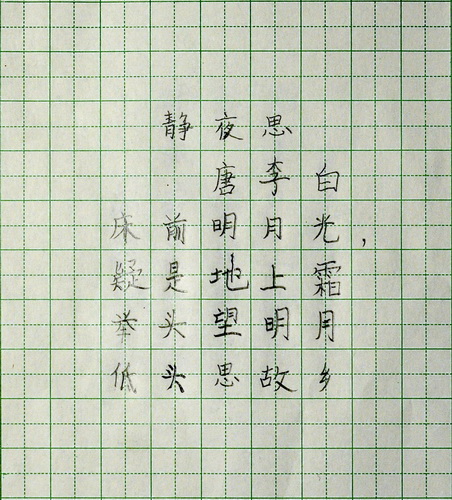 静夜思
唐李白
床前明月光，
疑是地上霜
举头望明月
低头思故乡